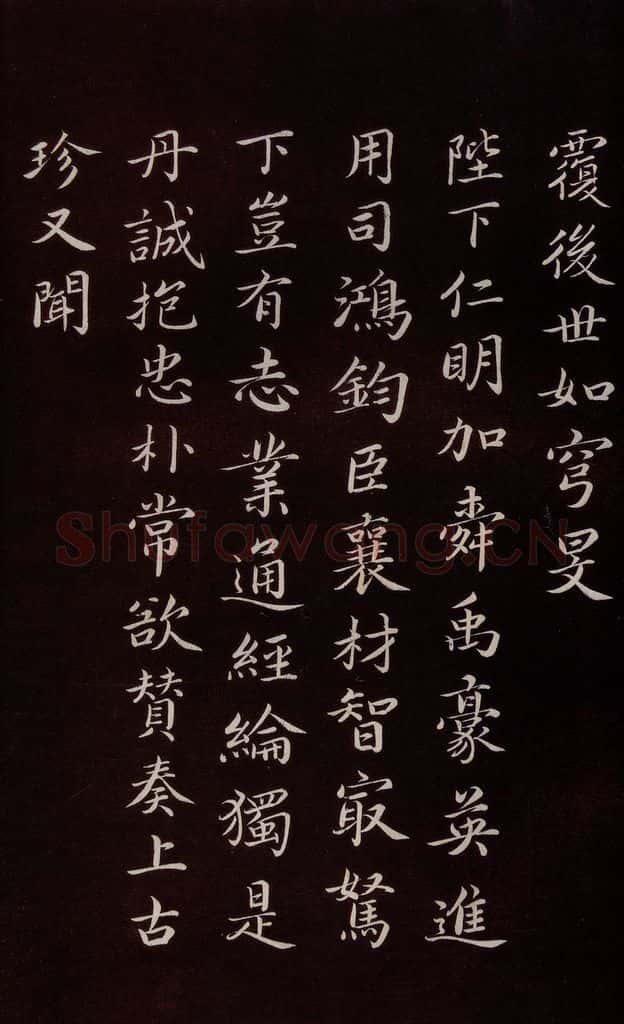 覆後世如穹旻
陛下仁明加舜禹豪英進
用司鴻鈞臣襄材智㝡駑
下豈有志業通經綸獨是
丹誠抱忠朴常欲贊奏上古
珍又聞
Shufawang.CN